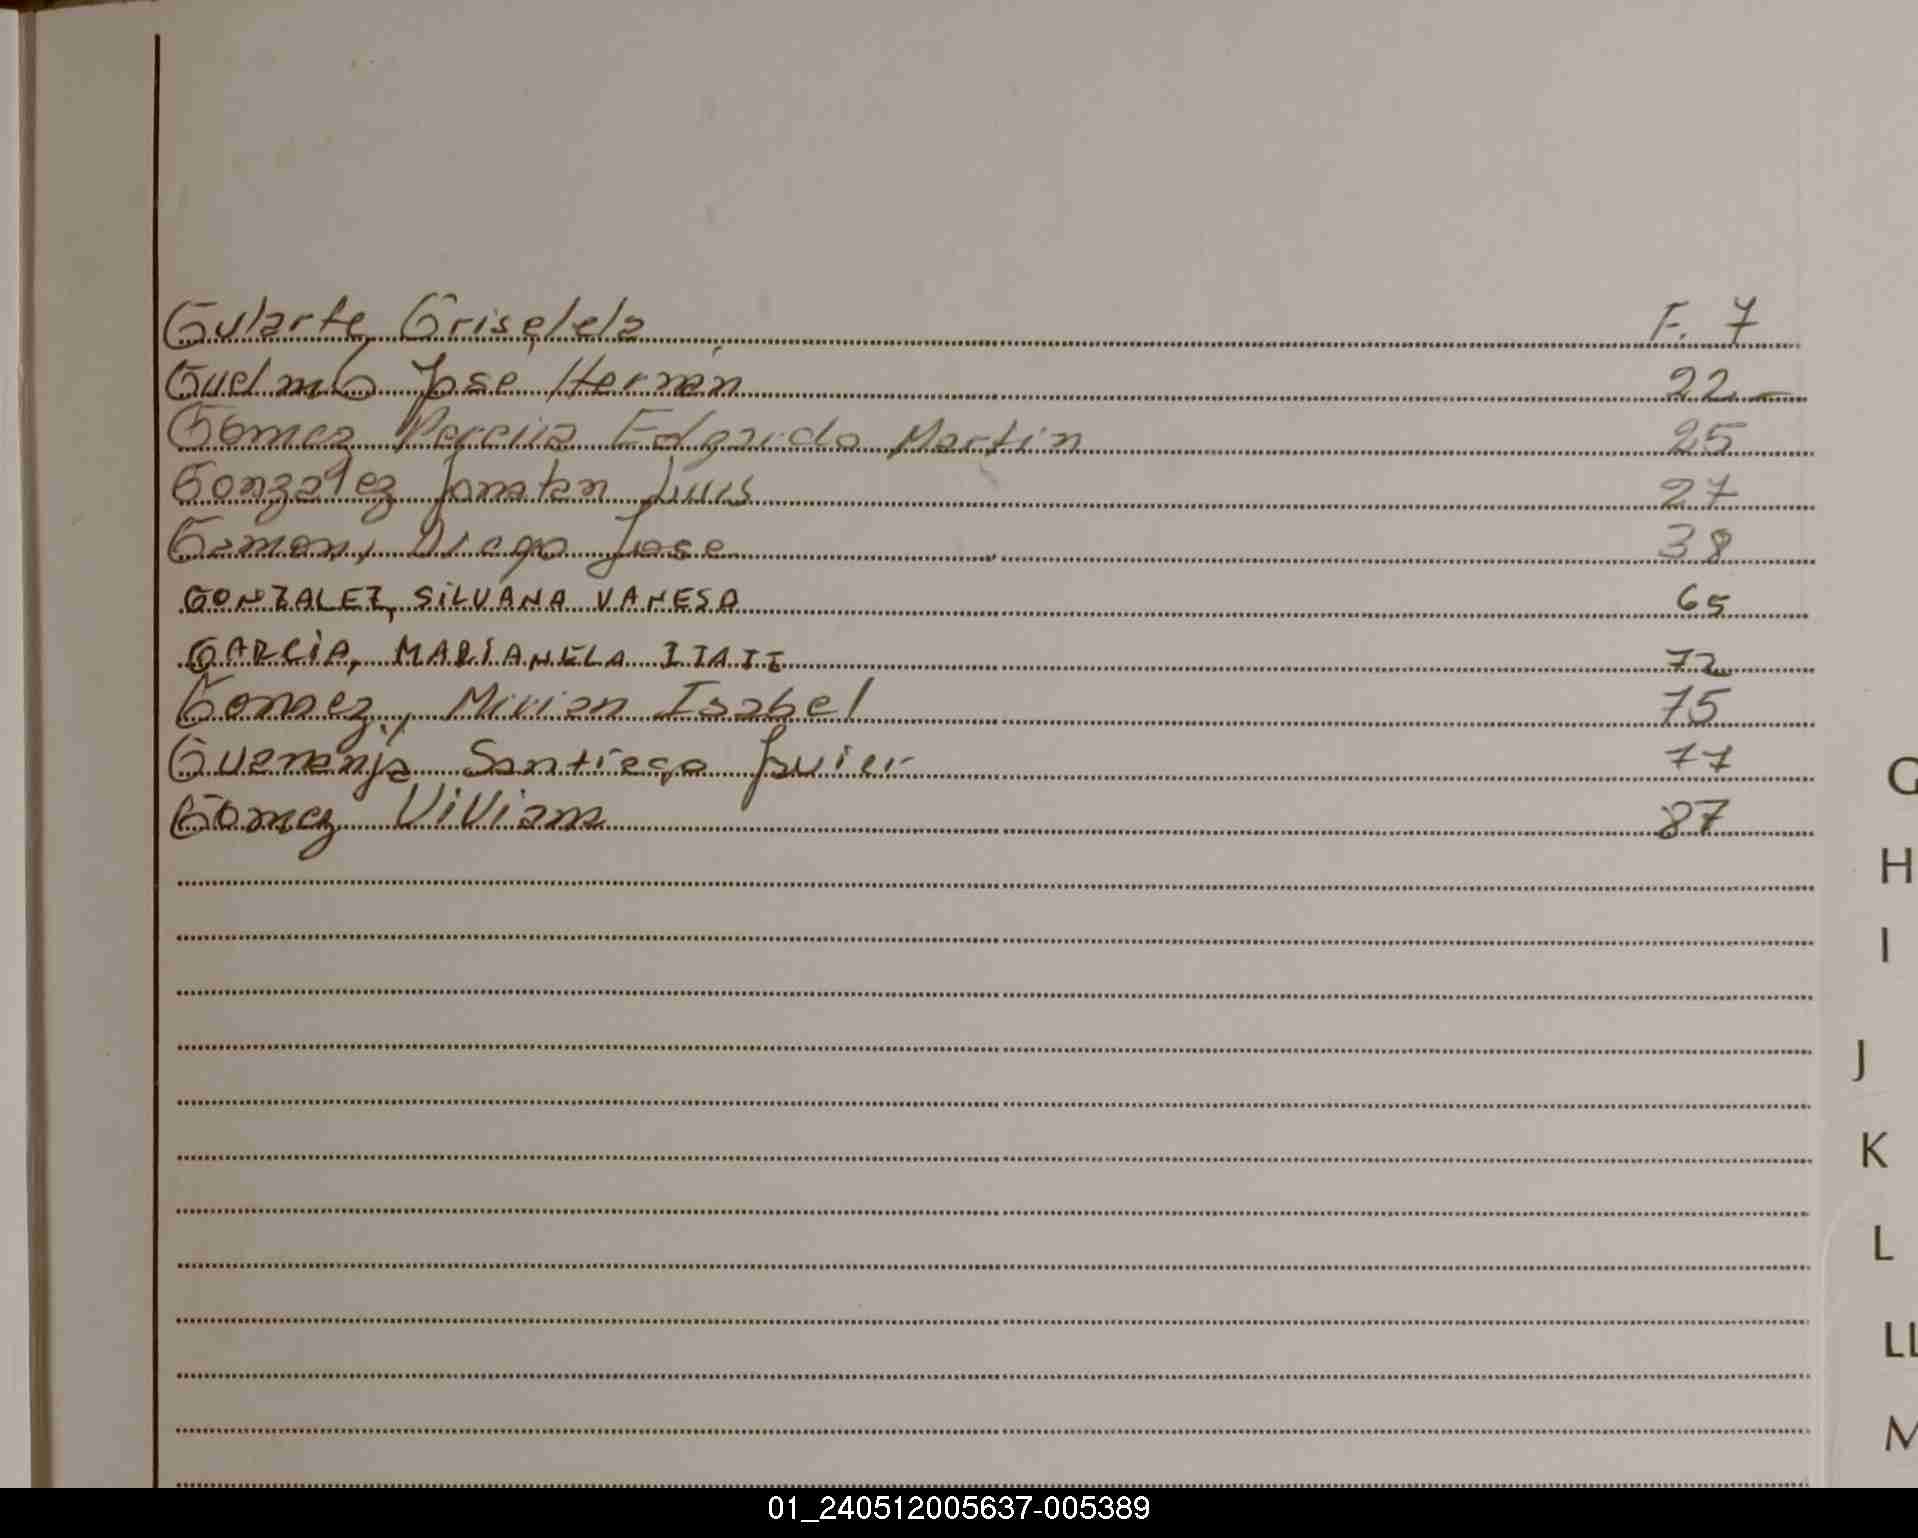 Gularte, Griselda F. 7
Guelmo Jose Hernán 22 -
Gomez Pereira Edgardo Martin 25
Gonzalez Jonatan Luis 27
Gamon, Diego Jose 38
GONZALEZ, SILVANA VANESA 65
GARCÍA, MARIANELA ITATI 72
Gomez, Mirian Isabel 75
Santiago Javier 77
Gomez ViViana 87
G
H
I
J
K
L
LL
M
01_240512005637-005389